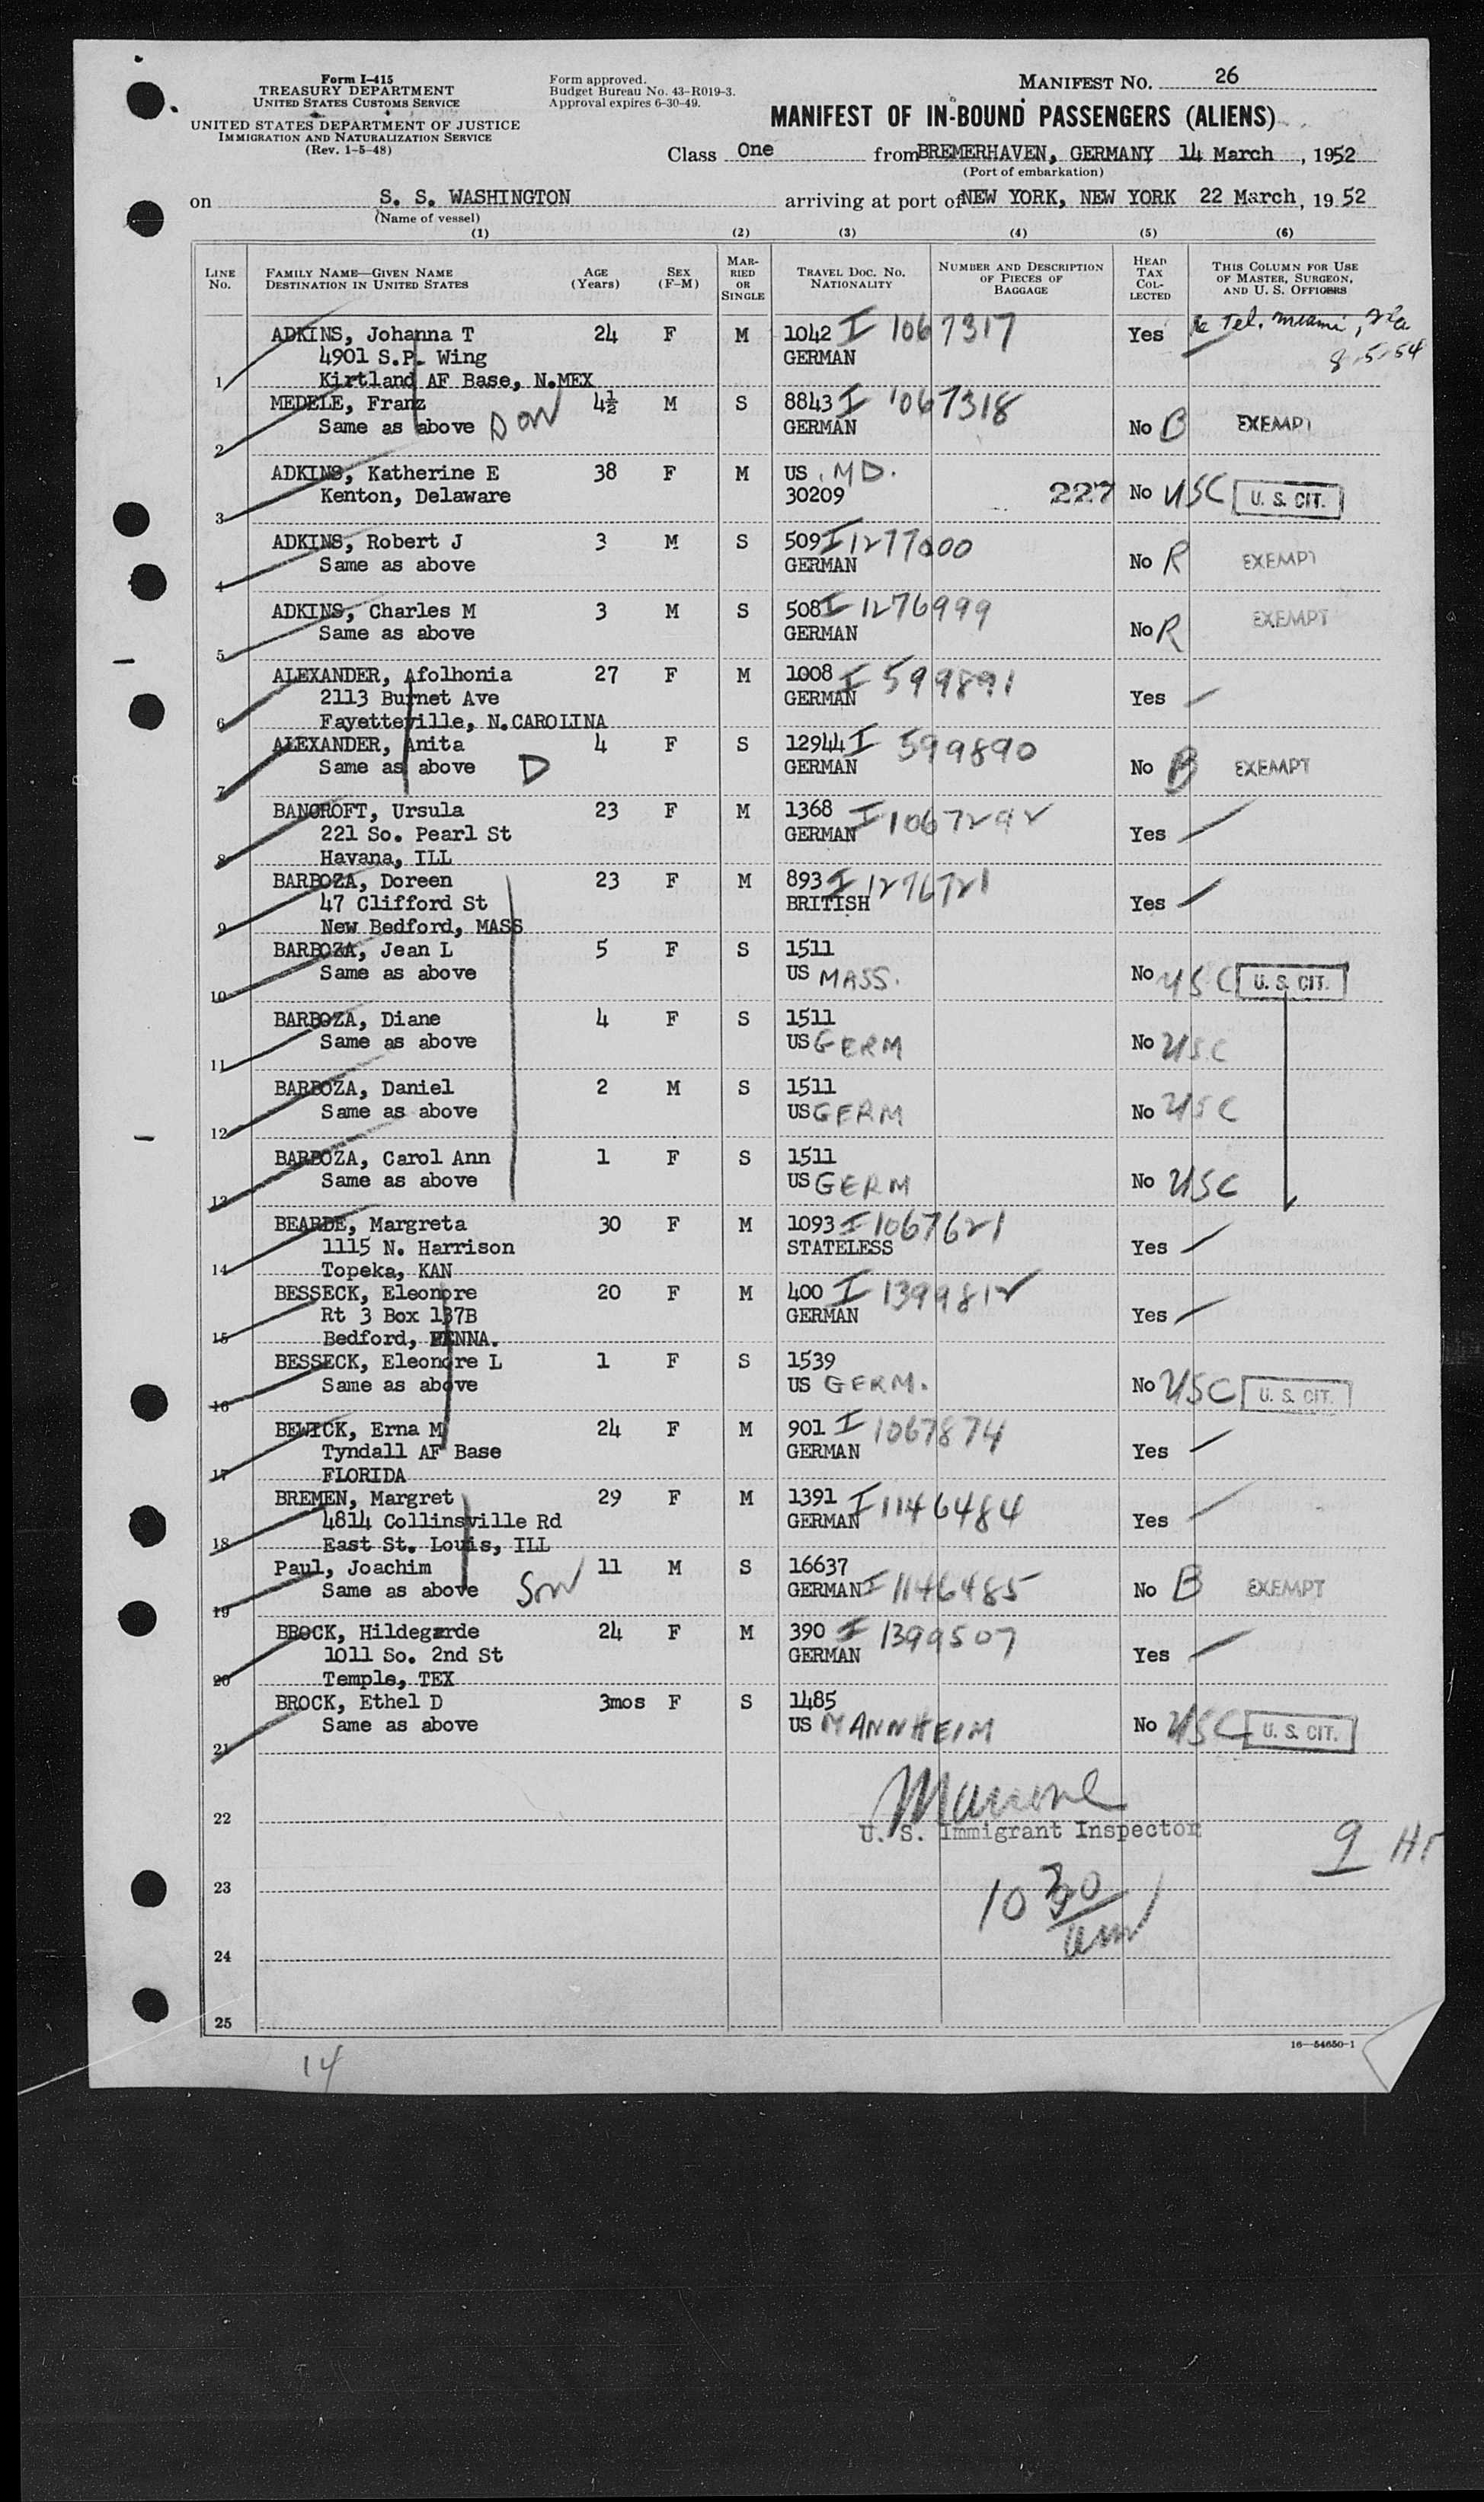 Form I-415
TREASURY DEPARTMENT
UNITED STATES CUSTOMS SERVICE
UNITED STATES DEPARTMENT OF JUSTICE
IMMIGRATION AND NATURALIZATION SERVICE
(Rev. 1-5-48)
Form approved.
Budget Bureau No. 43-R019-3.
Approval expires 6-30-49.
MANIFEST NO. 26
MANIFEST OF IN-BOUND PASSENGERS (ALIENS)
Class One from BREMERHAVEN, GERMANY 14 March, 1952
(Port of embarkation)
on S. S. WASHINGTON arriving at port of NEW YORK, NEW YORK 22 March, 1952
(Name of vessel)
(1) (2) (3) (4) (5) (6)
LINE No. FAMILY NAME—GIVEN NAME DESTINATION IN UNITED STATES AGE (Years) SEX (F-M) MARRIED OR SINGLE TRAVEL DOC. NO. NATIONALITY NUMBER AND DESCRIPTION OF PIECES OF BAGGAGE HEAD TAX COLLECTED THIS COLUMN FOR USE OF MASTER, SURGEON, AND U. S. OFFICERS
ADKINS, Johanna T 24 F M 1042 I 1067317 Yes Tel. Miami, Fla
4901 S.P. Wing GERMAN 8-5-54
1 Kirtland AF Base, N.MEX
MEDELE, Franz 4½ M S 8843 I 1067318
2 Same as above GERMAN No B EXEMPT
ADKINS, Katherine E 38 F M US MD.
3 Kenton, Delaware 30209 227 No USC U. S. CIT.
ADKINS, Robert J 3 M S 509 I 1277000
4 Same as above GERMAN No R EXEMPT
ADKINS, Charles M 3 M S 508 I 1276999
5 Same as above GERMAN No R EXEMPT
ALEXANDER, Afolhonia 27 F M 1008 I 599891
2113 Burnet Ave GERMAN Yes
6 Fayetteville, N.CAROLINA
ALEXANDER, Anita 4 F S 12944 I 599890
7 Same as above D GERMAN No B EXEMPT
BANCROFT, Ursula 23 F M 1368 I 1067292
221 So. Pearl St GERMAN Yes
8 Havana, ILL
BARBOZA, Doreen 23 F M 893 I 1276721
47 Clifford St BRITISH Yes
9 New Bedford, MASS
BARBOZA, Jean L 5 F S 1511
10 Same as above US MASS. No USC U. S. CIT.
BARBOZA, Diane 4 F S 1511
11 Same as above US GERM No USC
BARBOZA, Daniel 2 M S 1511
12 Same as above US GERM No USC
BARBOZA, Carol Ann 1 F S 1511
13 Same as above US GERM No USC
BEARDE, Margreta 30 F M 1093 I 1067621
1115 N. Harrison STATELESS Yes
14 Topeka, KAN
BESSECK, Eleonore 20 F M 400 I 1399812
Rt 3 Box 137B GERMAN Yes
15 Bedford, PENNA.
BESSECK, Eleonore L 1 F S 1539
16 Same as above US GERM. No USC U. S. CIT.
BEWICK, Erna M 24 F M 901 I 1067874
Tyndall AF Base GERMAN Yes
17 FLORIDA
BREMEN, Margret 29 F M 1391 I 1146484
4814 Collinsville Rd GERMAN Yes
18 East St. Louis, ILL
Paul, Joachim 11 M S 16637
19 Same as above Son GERMAN I 1146485 No B EXEMPT
BROCK, Hildegarde 24 F M 390 I 1399507
1011 So. 2nd St GERMAN Yes
20 Temple, TEX
BROCK, Ethel D 3mos F S 1485
21 Same as above US MANNHEIM No USC U. S. CIT.
22
U. S. Immigrant Inspector
9
23
10 30
am
24
25
16—54650-1
14